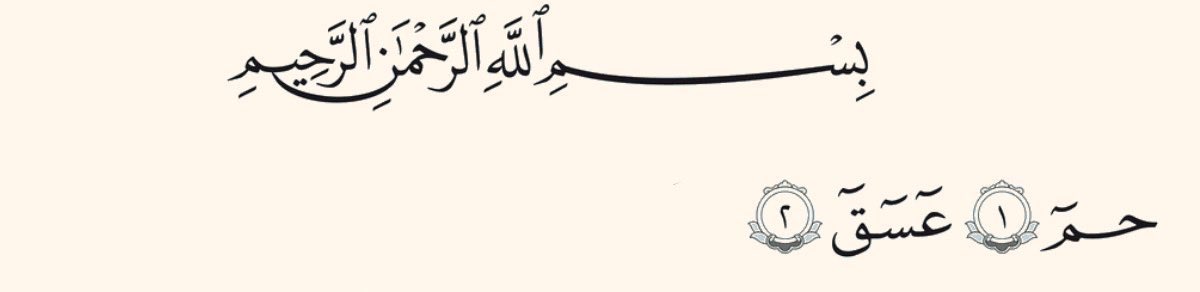 بِسْمِ ٱللَّهِ ٱلرَّحْمَٰنِ ٱلرَّحِيمِ
حمٓ ١ عٓسٓقٓ ٢